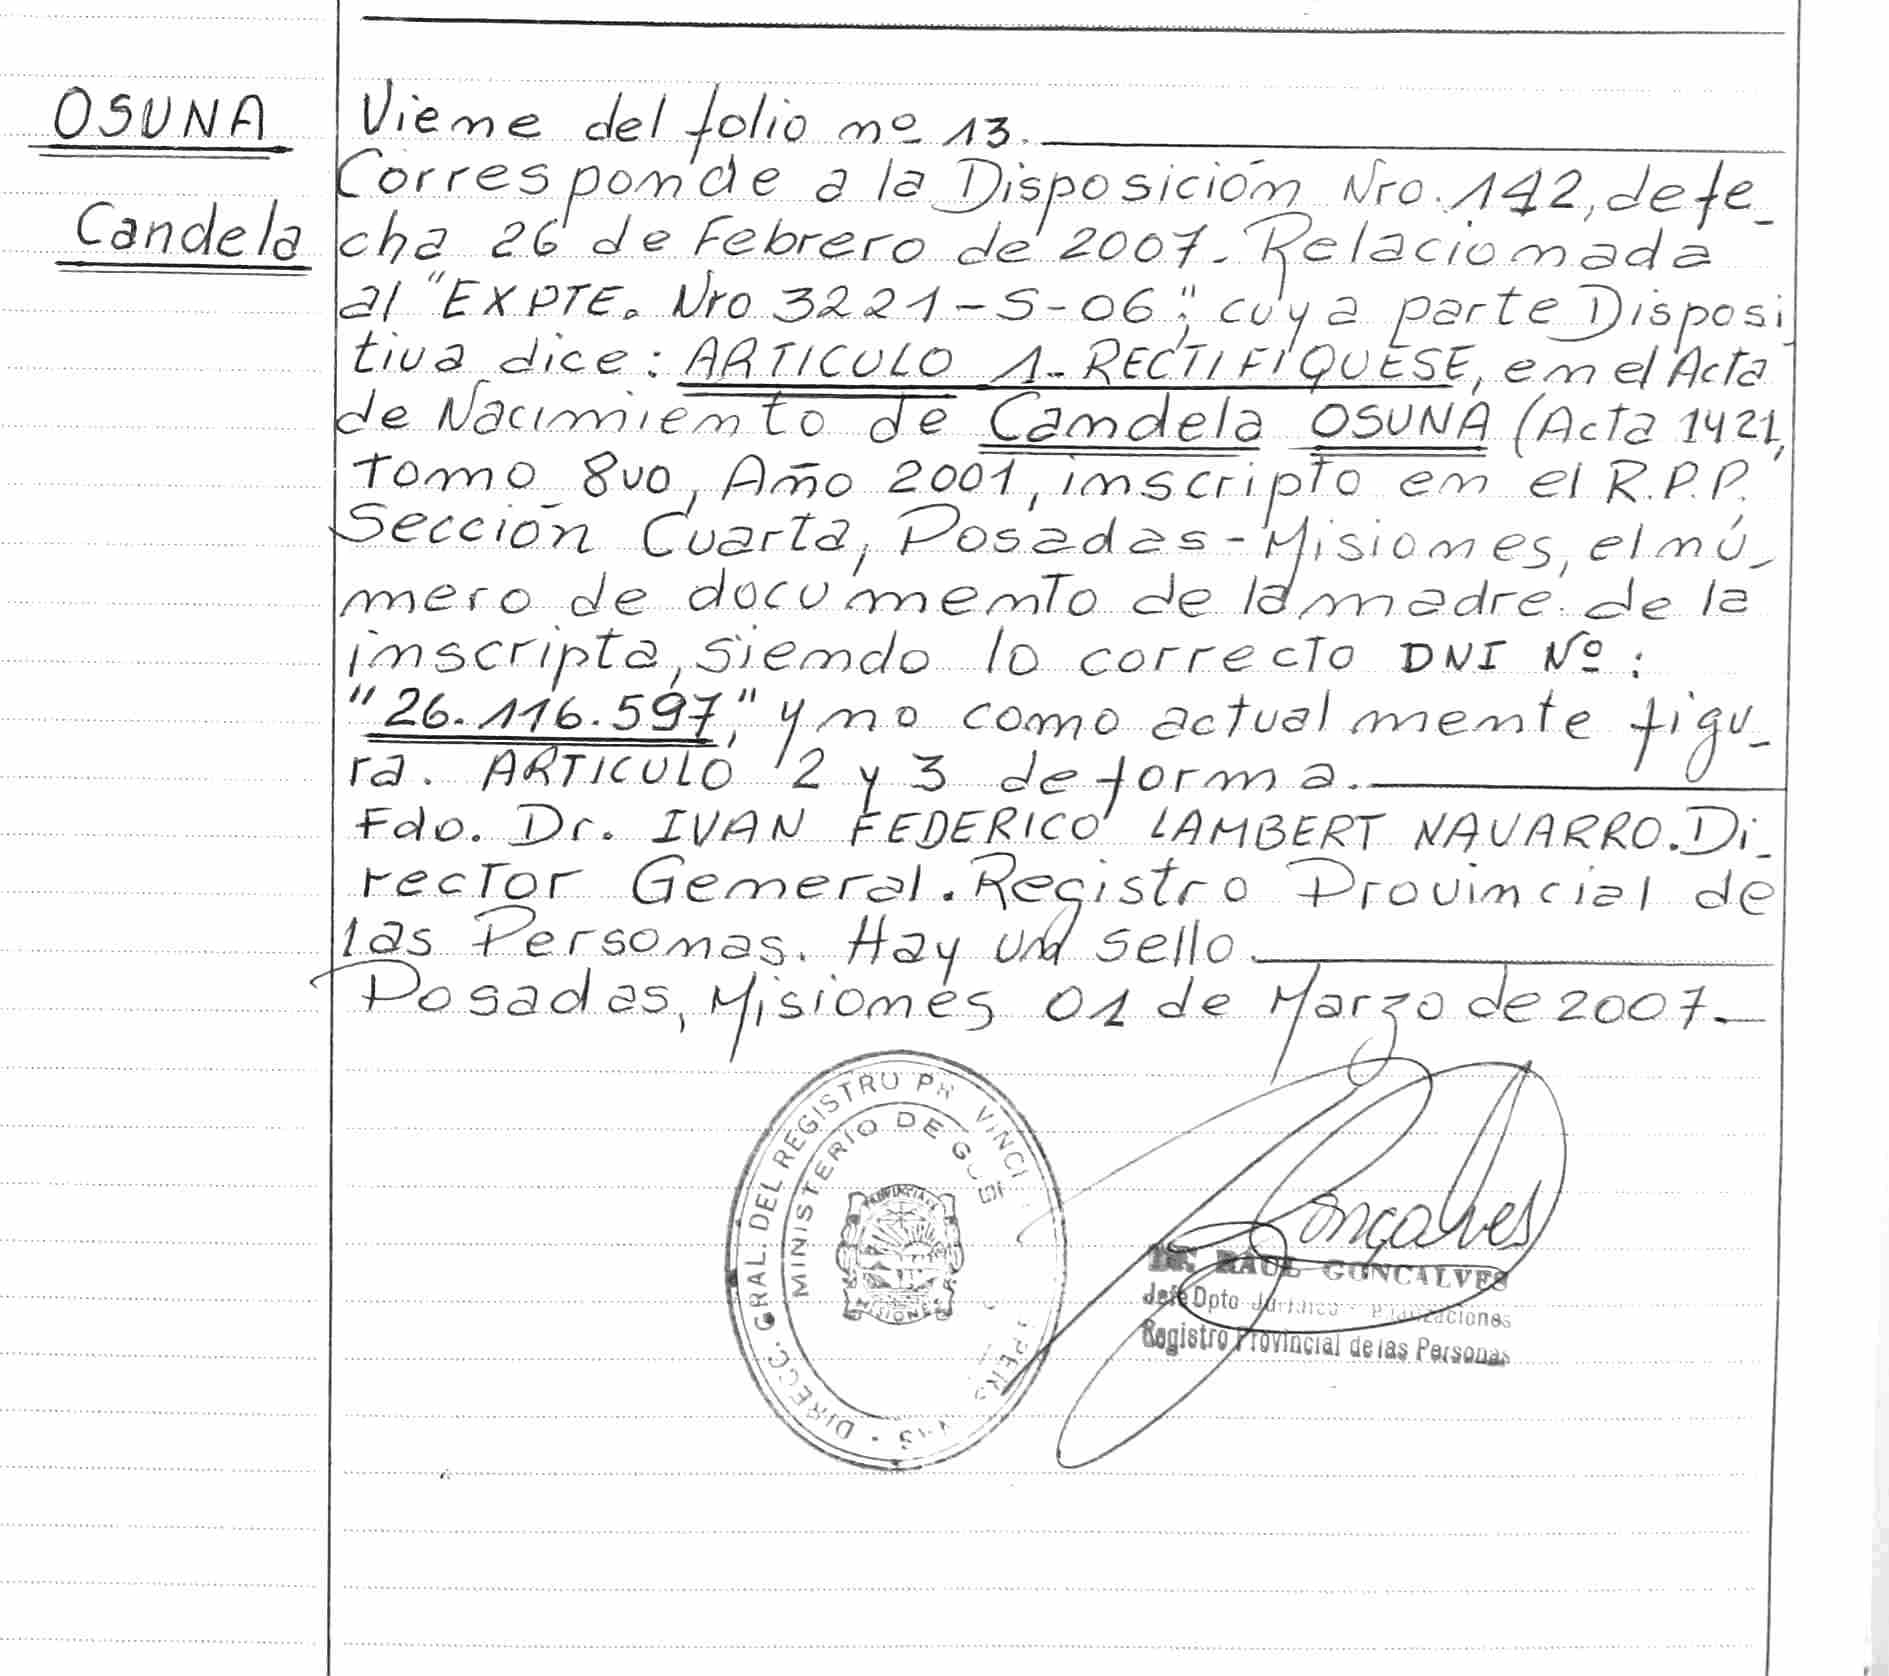 OSUNA
Candela
Viene del folio nº 13.
Corresponde a la Disposición Nro. 142, de fe_
cha 26 de Febrero de 2007. Relacionada
al "EXPTE. Nro 3221-S-06", cuya parte Disposi
tiva dice: ARTICULO 1- RECTIFIQUESE, en el Acta
de Nacimiento de Candela OSUNA (Acta 1421,
Tomo 8vo, Año 2001, inscripto en el R.P.P.
Sección Cuarta, Posadas-Misiones, el nú_
mero de documento de la madre de la
inscripta, siendo lo correcto DNI Nº:
"26.116.597", y no como actualmente figu_
ra. ARTICULO 2 y 3 de forma.
Fdo. Dr. IVAN FEDERICO LAMBERT NAVARRO. Di_
rector General. Registro Provincial de
las Personas. Hay un sello.
Posadas, Misiones 01 de Marzo de 2007.
DIRECC. GRAL. DEL REGISTRO
MINISTERIO DE
MISIONES
Gonçalves
Dr. RAUL GONCALVES
Jefe Dpto
Registro Provincial de las Personas